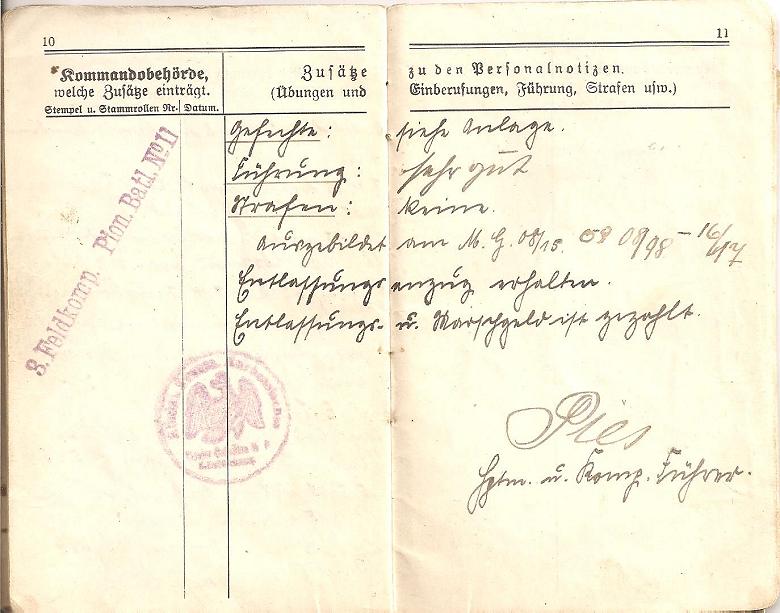 10
11
Kommandobehörde,
welche Zusätze einträgt.
Stempel u. Stammrollen Nr. Datum.
Zusätze zu den Personalnotizen.
(Übungen und Einberufungen, Führung, Strafen usw.)
Gefechte: siehe Anlage.
Führung: sehr gut
Strafen: keine.
Ausgebildet am M. G. 08/15. 08/98 - 16/17
Entlassungsanzug erhalten.
Entlassungs- u. Marschgeld ist gezahlt.
3. Feldkomp. Pion. Batl. No 11
Pies
Hptm. u. Komp. Führer.